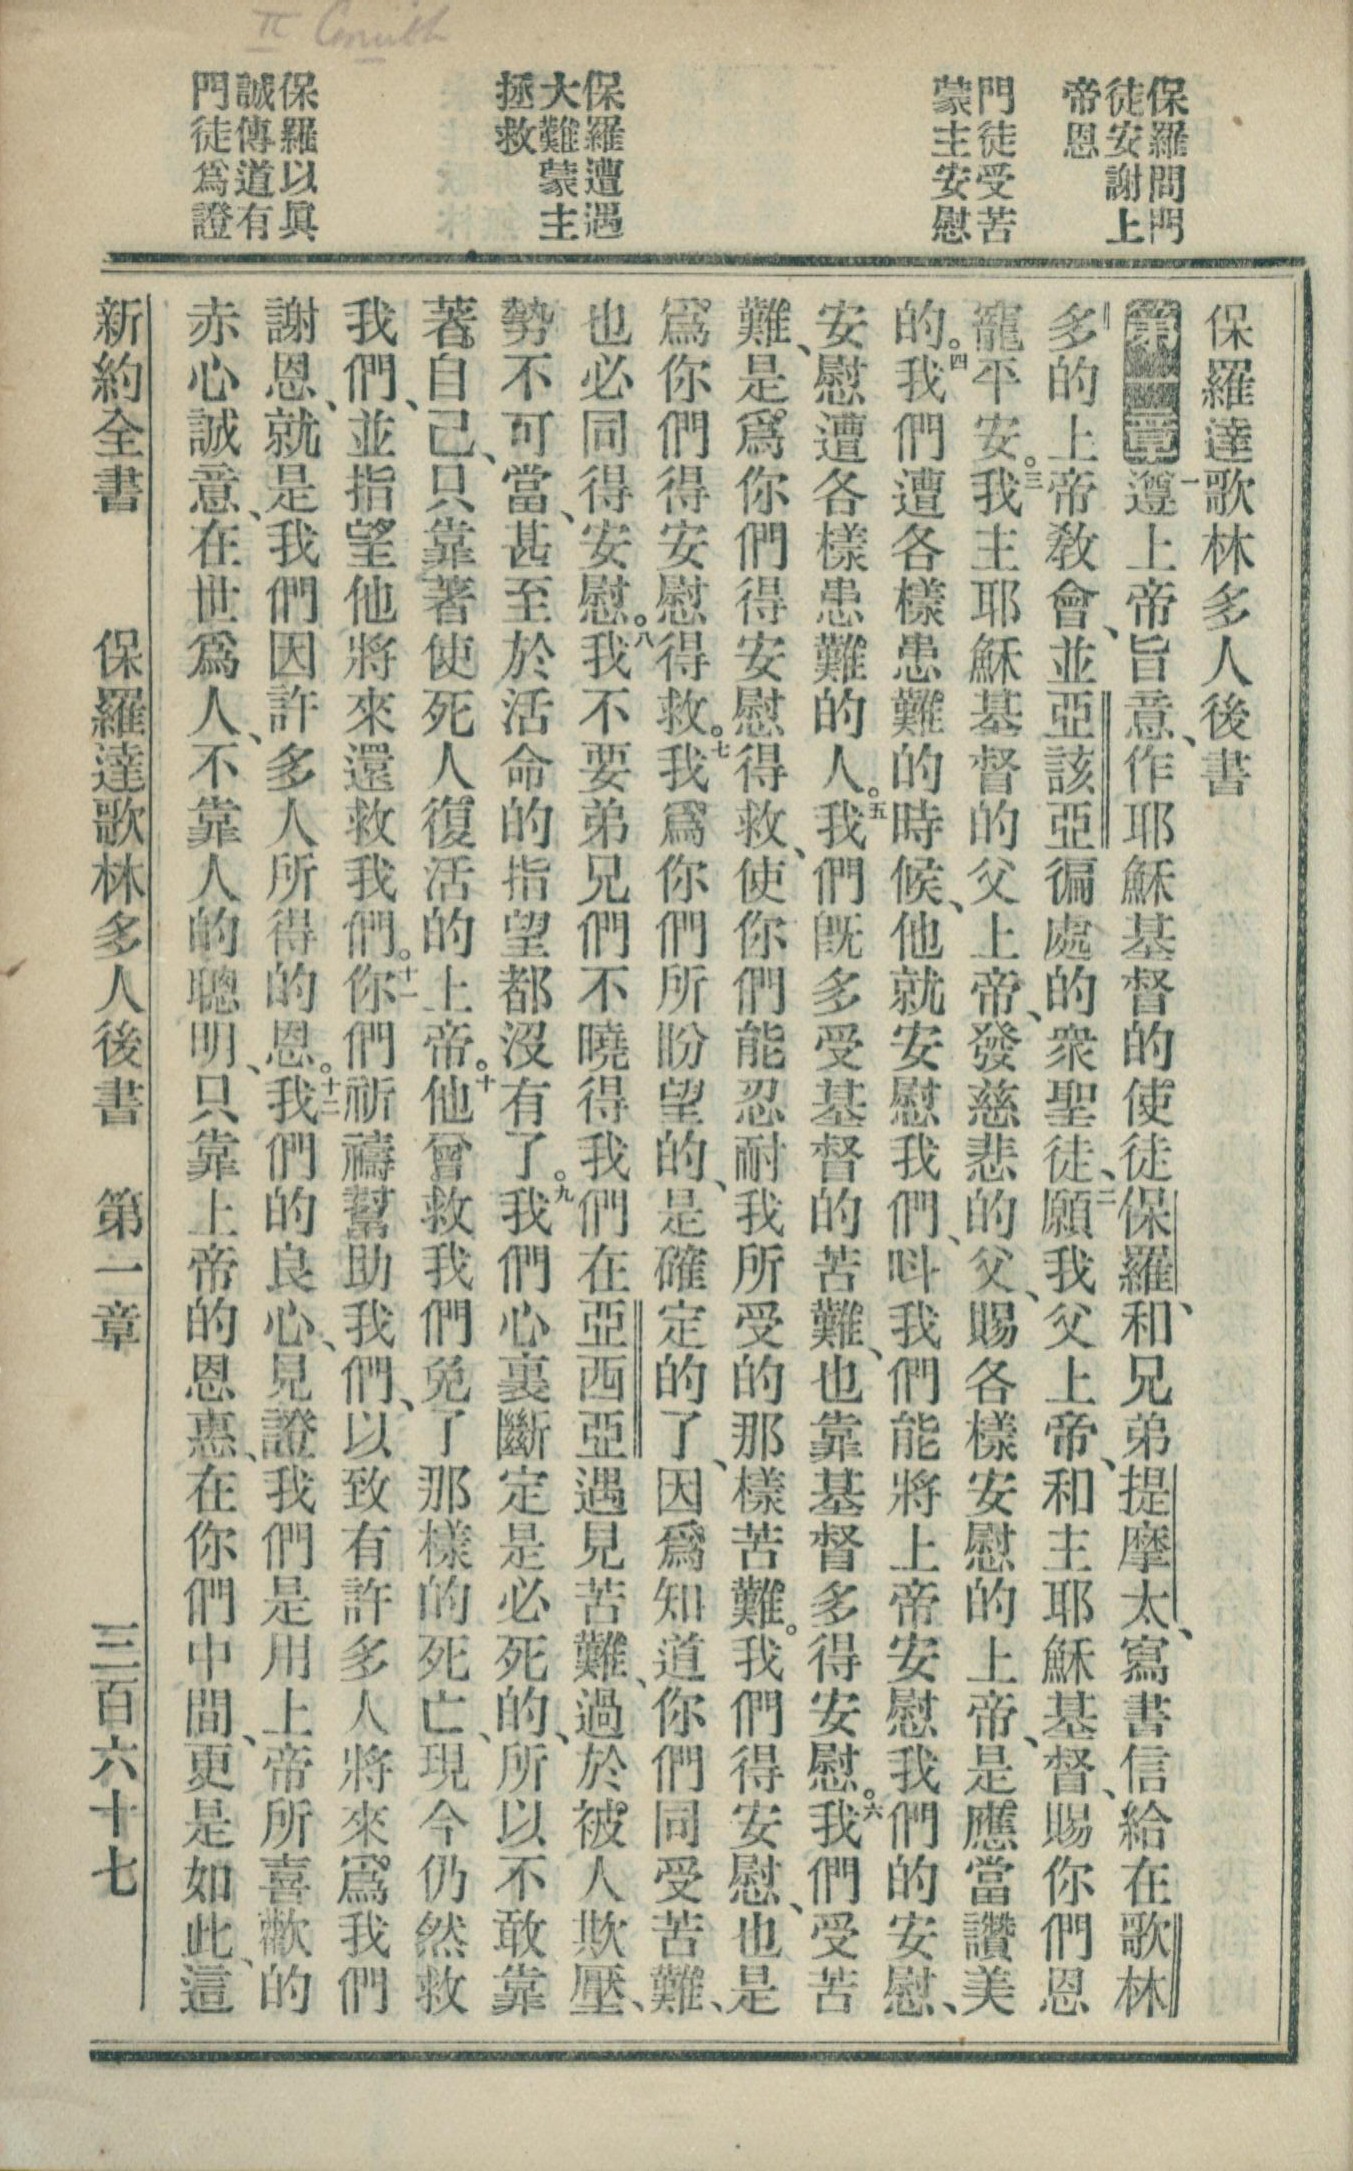 II Corinth
保羅問門
徒安謝上
帝恩
門徒受苦
蒙主安慰
保羅遭遇
大難蒙主
拯救
保羅以眞
誠傳道有
門徒爲證
保羅達歌林多人後書
第一章一遵上帝旨意、作耶穌基督的使徒保羅、和兄弟提摩太、寫書信給在歌林
多的上帝教會、並亞該亞徧處的衆聖徒、二願我父上帝、和主耶穌基督、賜你們恩
寵平安。三我主耶穌基督的父上帝、發慈悲的父、賜各樣安慰的上帝、是應當讚美
的。四我們遭各樣患難的時候、他就安慰我們、呌我們能將上帝安慰我們的安慰、
安慰遭各樣患難的人。五我們旣多受基督的苦難、也靠基督多得安慰。六我們受苦
難、是爲你們得安慰得救、使你們能忍耐我所受的那樣苦難。我們得安慰、也是
爲你們得安慰得救。七我爲你們所盼望的、是確定的了、因爲知道你們同受苦難、
也必同得安慰。八我不要弟兄們不曉得我們在亞西亞遇見苦難、過於被人欺壓、
勢不可當、甚至於活命的指望都沒有了。九我們心裏斷定是必死的、所以不敢靠
著自己、只靠著使死人復活的上帝。十他曾救我們免了那樣的死亡、現今仍然救
我們、並指望他將來還救我們。十一你們祈禱幫助我們、以致有許多人將來爲我們
謝恩、就是我們因許多人所得的恩。十二我們的良心、見證我們是用上帝所喜歡的
赤心誠意、在世爲人、不靠人的聰明、只靠上帝的恩惠、在你們中間、更是如此、這
新約全書　保羅達歌林多人後書　第一章　三百六十七